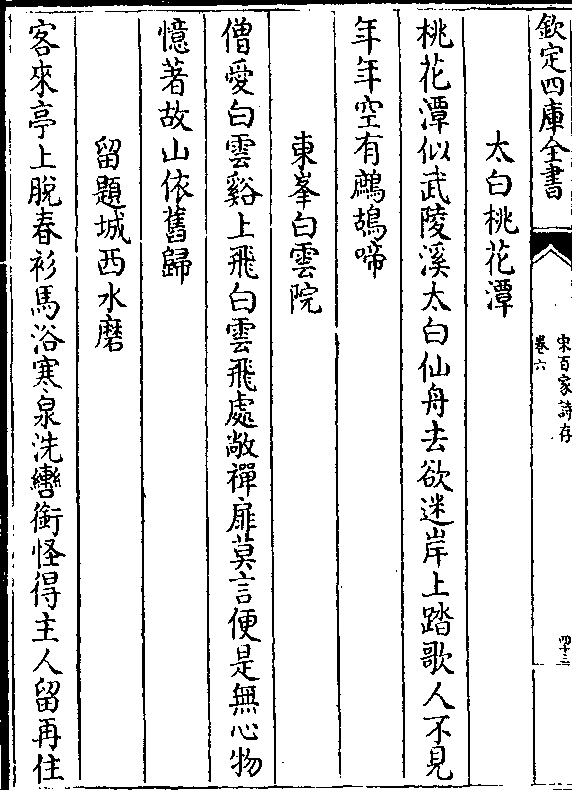 欽定四庫全書
宋百家詩存
卷六
四十三
太白桃花潭
桃花潭似武陵溪太白仙舟去欲迷岸上踏歌人不見
年年空有鷓鴣啼
東峯白雲院
僧愛白雲谿上飛白雲飛處敞禪扉莫言便是無心物
憶著故山依舊歸
留題城西水磨
客來亭上脫春衫馬浴寒泉洗轡銜怪得主人留再住